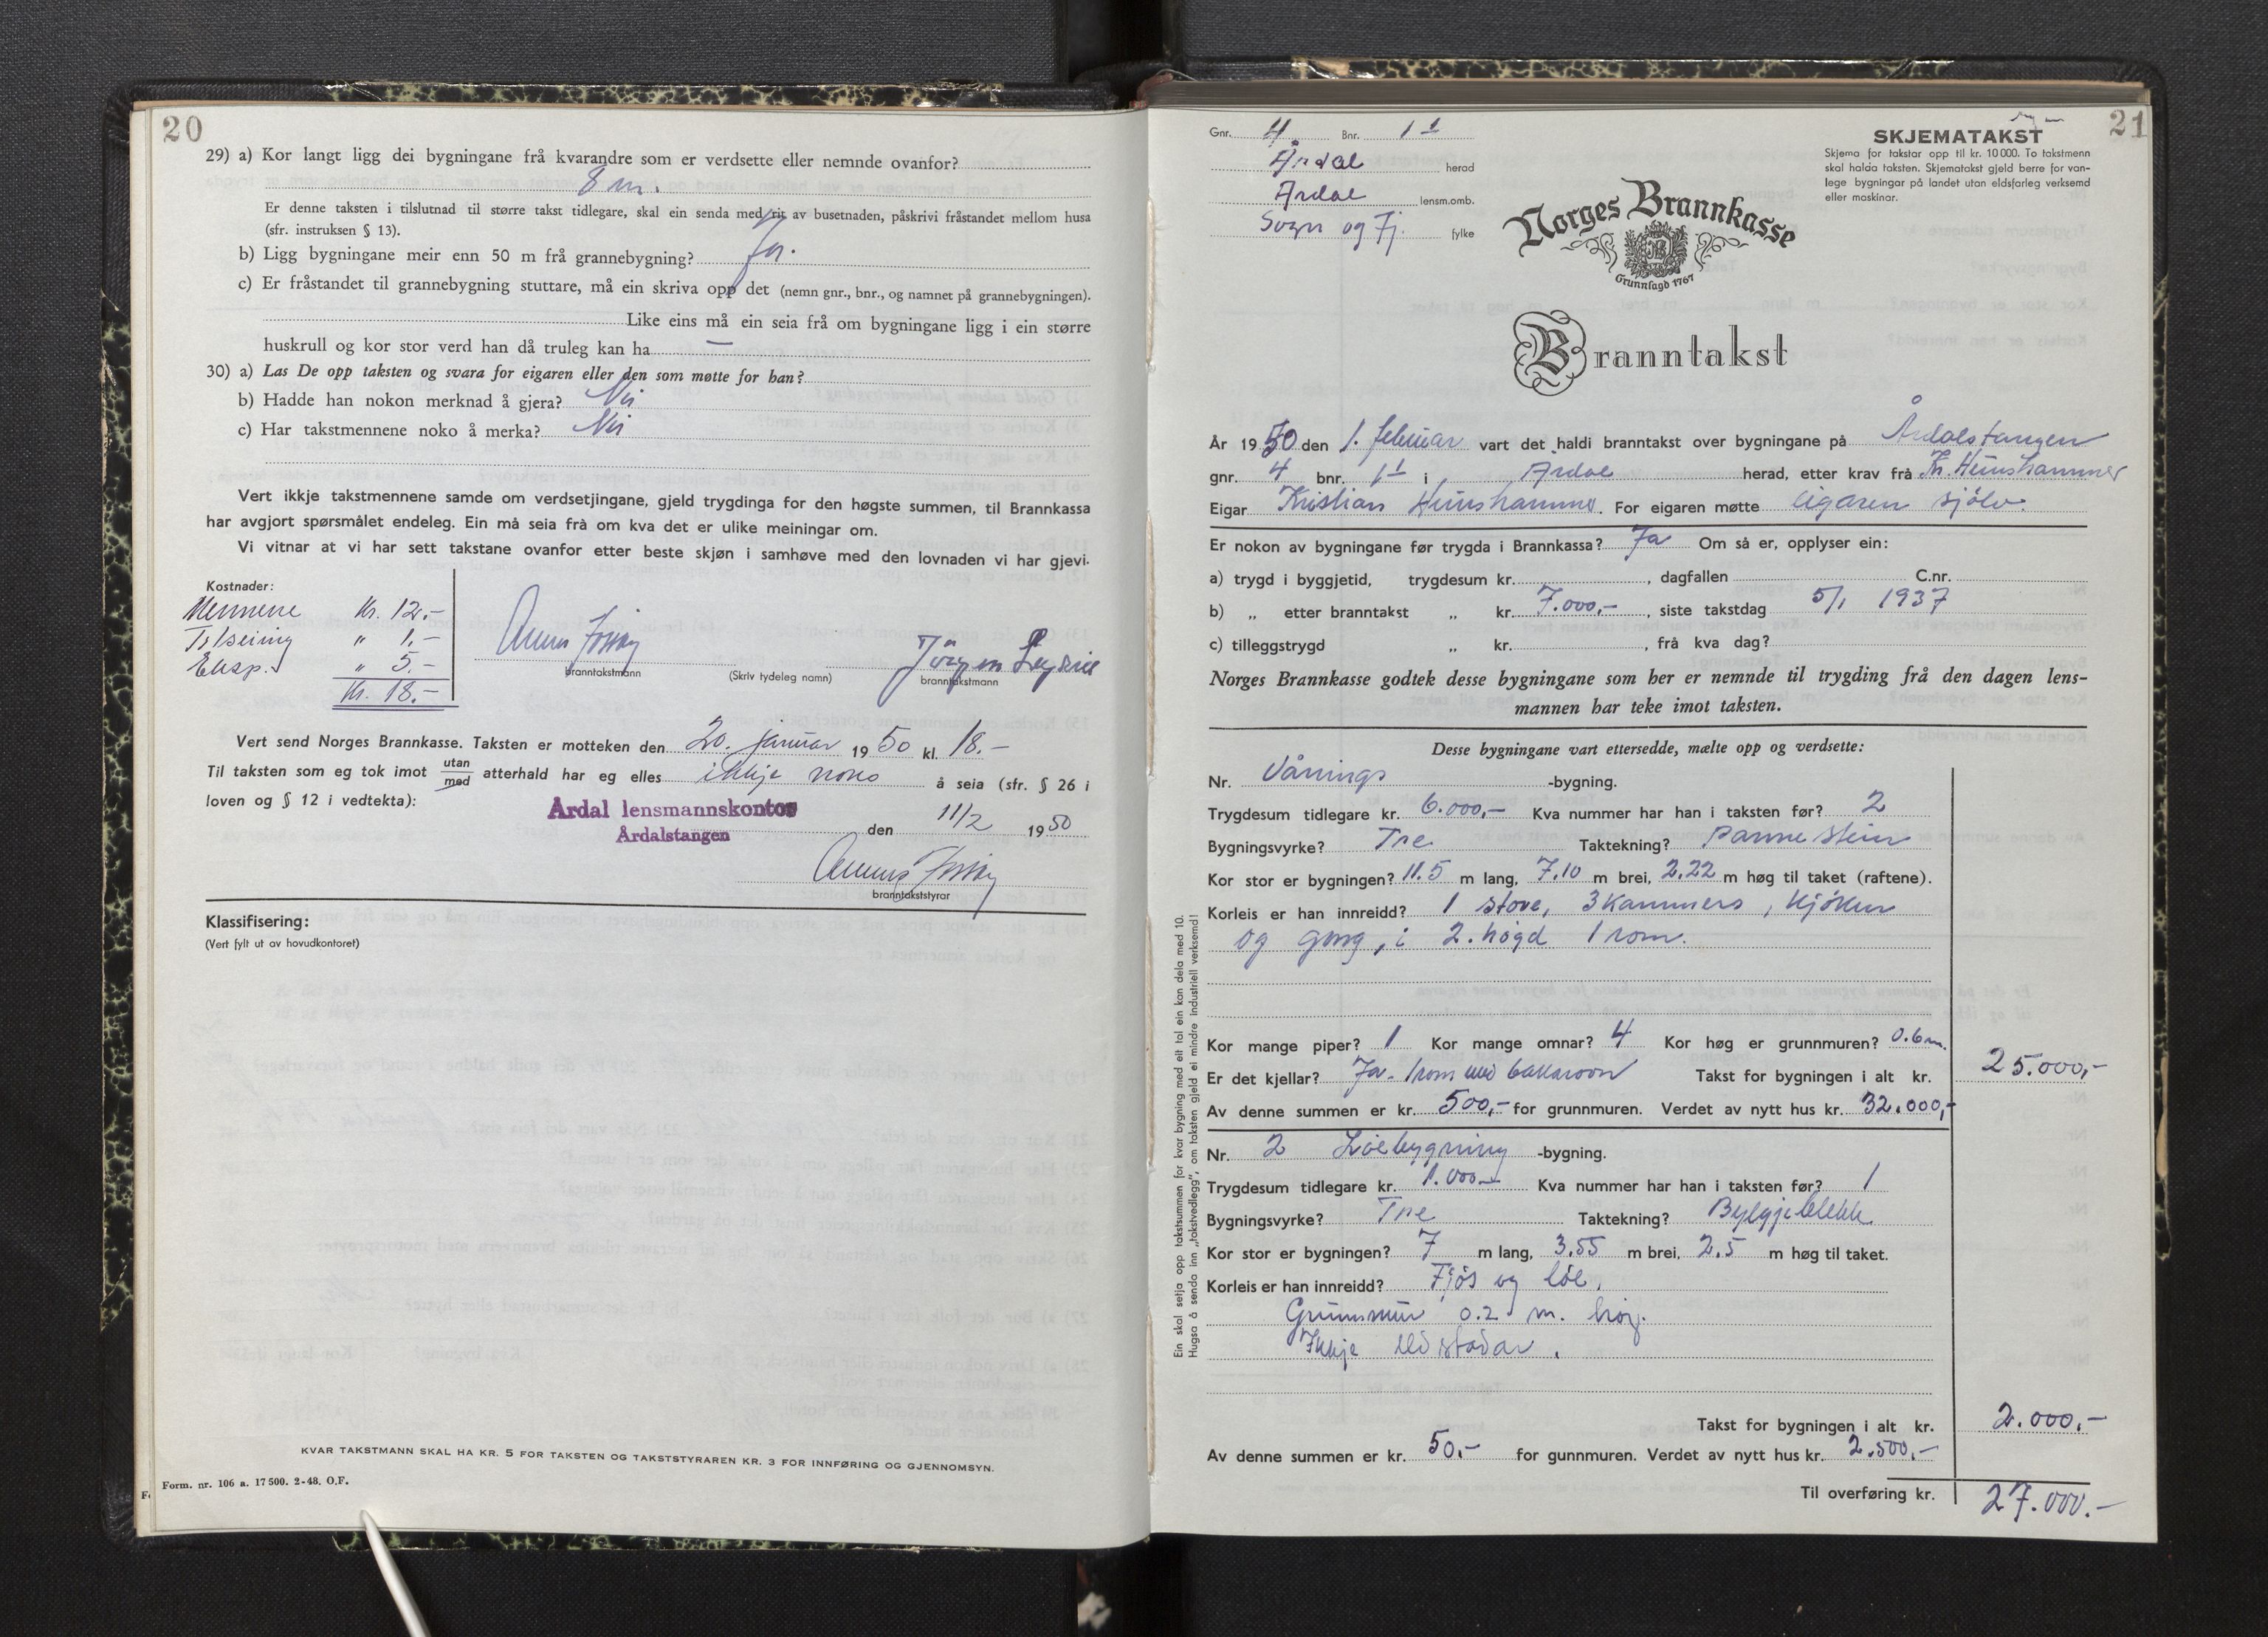 20
29) a) Kor langt ligg dei bygningane frå kvarandre som er verdsette eller nemnde ovanfor?
8 m.
Er denne taksten i tilslutnad til større takst tidlegare, skal ein senda med rit av busetnaden, påskrivi fråstandet mellom husa
(sfr. instruksen § 13).
b) Ligg bygningane meir enn 50 m frå grannebygning? Ja.
c) Er fråstandet til grannebygning stuttare, må ein skriva opp det (nemn gnr., bnr., og namnet på grannebygningen).
Like eins må ein seia frå om bygningane ligg i ein større
huskrull og kor stor verd han då truleg kan ha —
30) a) Las De opp taksten og svara for eigaren eller den som møtte for han?
b) Hadde han nokon merknad å gjera? Nei
c) Har takstmennene noko å merka? Nei
Vert ikkje takstmennene samde om verdsetjingane, gjeld trygdinga for den høgste summen, til Brannkassa
har avgjort spørsmålet endeleg. Ein må seia frå om kva det er ulike meiningar om.
Vi vitnar at vi har sett takstane ovanfor etter beste skjøn i samhøve med den lovnaden vi har gjevi.
Kostnader:
Mennene Kr. 12.-
" 1.-
Eksp. " 5.-
Kr. 18.-
Jörgen
branntakstmann (Skriv tydeleg namn) branntakstmann
Vert send Norges Brannkasse. Taksten er motteken den 20. januar 1950 kl. 18.-
Til taksten som eg tok imot utan/med atterhald har eg elles ikkje noko å seia (sfr. § 26 i
loven og § 12 i vedtekta):
Årdal lensmannskontor
Årdalstangen
den 11/2 1950
branntakststyrar
Klassifisering:
(Vert fylt ut av hovudkontoret)
KVAR TAKSTMANN SKAL HA KR. 5 FOR TAKSTEN OG TAKSTSTYRAREN KR. 3 FOR INNFØRING OG GJENNOMSYN.
Form. nr. 106 a. 17 500. 2-48. O.F.
21
Gnr. 4 Bnr. 11
Årdal herad
Årdal lensm.omb.
Sogn og Fj. fylke
SKJEMATAKST
Skjema for takstar opp til kr. 10 000. To takstmenn
skal halda taksten. Skjematakst gjeld berre for van-
lege bygningar på landet utan eldsfarleg verksemd
eller maskinar.
Norges Brannkasse
Grunnlagd 1767
Branntakst
År 1950 den 1. februar vart det haldi branntakst over bygningane på Årdalstangen
gnr. 4 bnr. 11 i Årdal herad, etter krav frå Kr. Heimshammer
Eigar Kristian Heimshammer. For eigaren møtte eigaren sjölv.
Er nokon av bygningane før trygda i Brannkassa? Ja Om så er, opplyser ein:
a) trygd i byggjetid, trygdesum kr. , dagfallen C.nr.
b) „ etter branntakst „ kr. 7.000,- , siste takstdag 5/1 1937
c) tilleggstrygd „ kr. , frå kva dag?
Norges Brannkasse godtek desse bygningane som her er nemnde til trygding frå den dagen lens-
mannen har teke imot taksten.
Desse bygningane vart ettersedde, mælte opp og verdsette:
Nr. Vånings -bygning.
Trygdesum tidlegare kr. 6.000,- Kva nummer har han i taksten før? 2
Bygningsvyrke? Tre. Taktekning? Pannestein
Kor stor er bygningen? 11.5 m lang, 7.10 m brei, 2.22 m høg til taket (raftene).
Korleis er han innreidd? 1 stove, 3 kammers, kjöken
og gong, i 2. högd 1 rom.
Kor mange piper? 1 Kor mange omnar? 4 Kor høg er grunnmuren? 0.6 m.
Er det kjellar? Ja. 1 rom med bakaromn Takst for bygningen i alt kr. 25.000,-
Av denne summen er kr. 500,- for grunnmuren. Verdet av nytt hus kr. 32.000,-
Nr. 2 Löebygning -bygning.
Trygdesum tidlegare kr. 1.000- Kva nummer har han i taksten før? 1
Bygningsvyrke? Tre Taktekning? Bylgjeblekk
Kor stor er bygningen? 7 m lang, 3.55 m brei, 2.5 m høg til taket.
Korleis er han innreidd? Fjös og löe.
Grunnmur 0.2 m. hög.
Ikkje eldstadar.
Takst for bygningen i alt kr. 2.000,-
Av denne summen er kr. 50.- for gunnmuren. Verdet av nytt hus kr. 2.500,-
Til overføring kr. 27.000.-
Ein skal setja opp takstsummen for kvar bygning med eit tal ein kan dela med 10.
Hugsa å senda inn „takstvedlegg", om taksten gjeld ei mindre industriell verksemd!